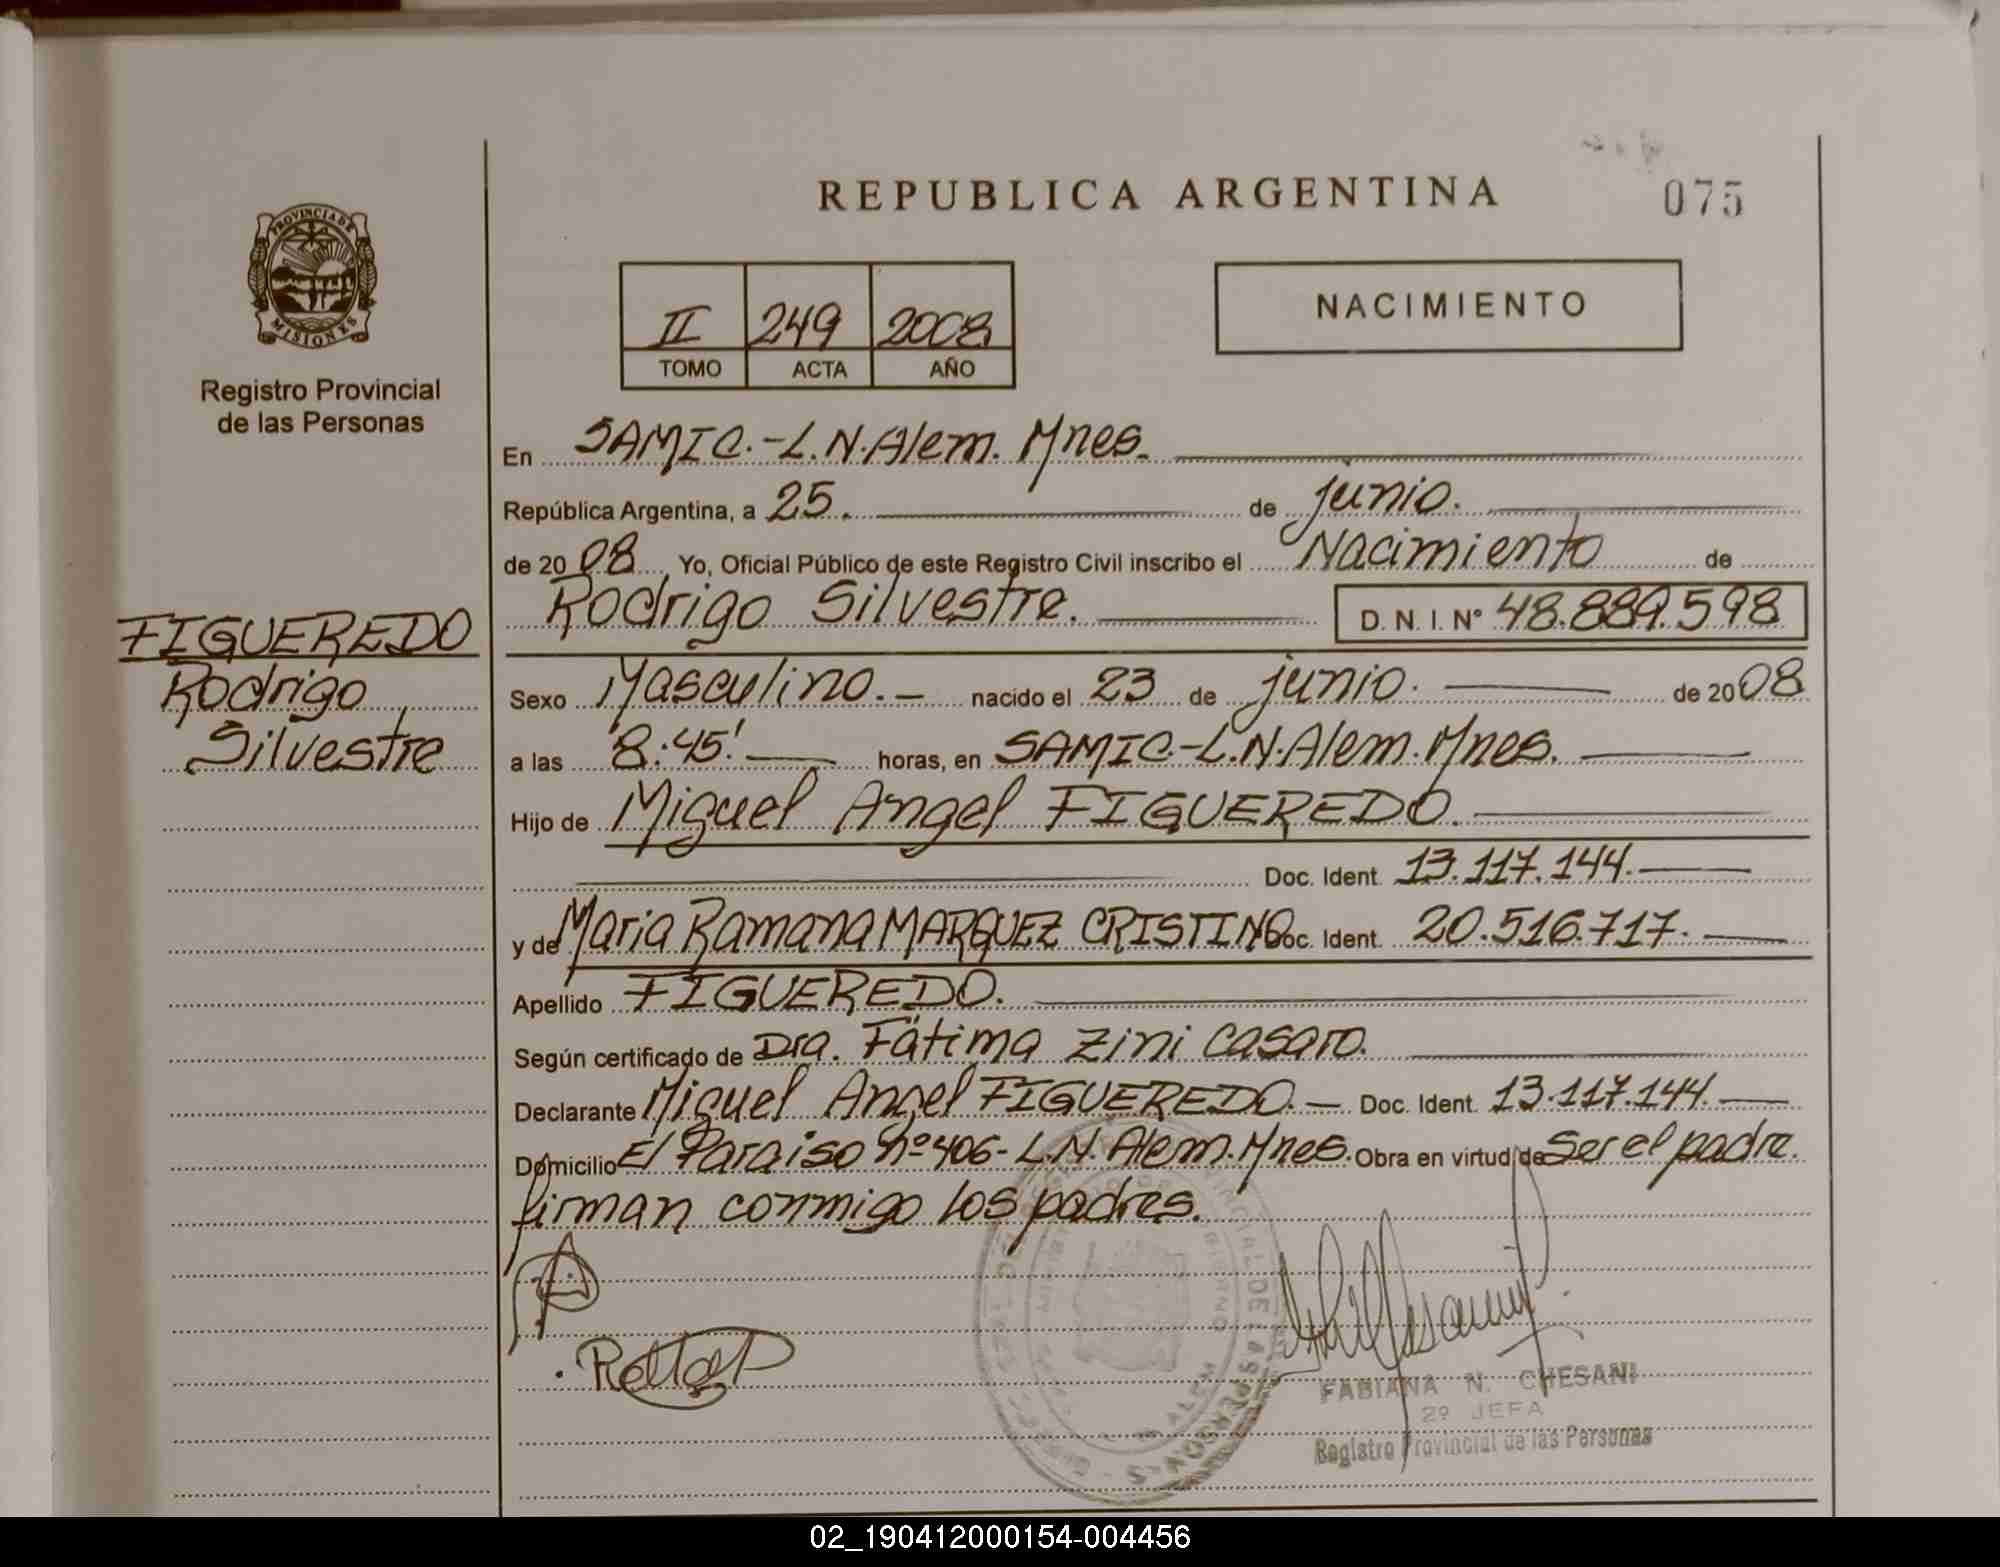 REPUBLICA ARGENTINA
075
PROVINCIA DE
MISIONES
Registro Provincial
de las Personas
II 249 2008
TOMO ACTA AÑO
NACIMIENTO
En SAMIC.-L.N.Alem. Mnes.
República Argentina, a 25. de junio.
de 2008, Yo, Oficial Público de este Registro Civil inscribo el Nacimiento de
Rodrigo Silvestre. D. N. I. Nº 48.889.598
FIGUEREDO
Rodrigo
Silvestre
Sexo Masculino.- nacido el 23 de junio. de 2008
a las 8:45' horas, en SAMIC.-L.N.Alem.Mnes.
Hijo de Miguel Angel FIGUEREDO.
Doc. Ident. 13.117.144.
y de Maria Ramana MARQUEZ CRISTINO Doc. Ident. 20.516.717.
Apellido FIGUEREDO.
Según certificado de Dra. Fátima Zini Casaro.
Declarante Miguel Angel FIGUEREDO.- Doc. Ident. 13.117.144.
Domicilio El Paraiso nº 406- L.N. Alem. Mnes. Obra en virtud de Ser el padre.
firman conmigo los padres.
FABIANA N. CHESANI
2º JEFA
Registro Provincial de las Personas
02_190412000154-004456